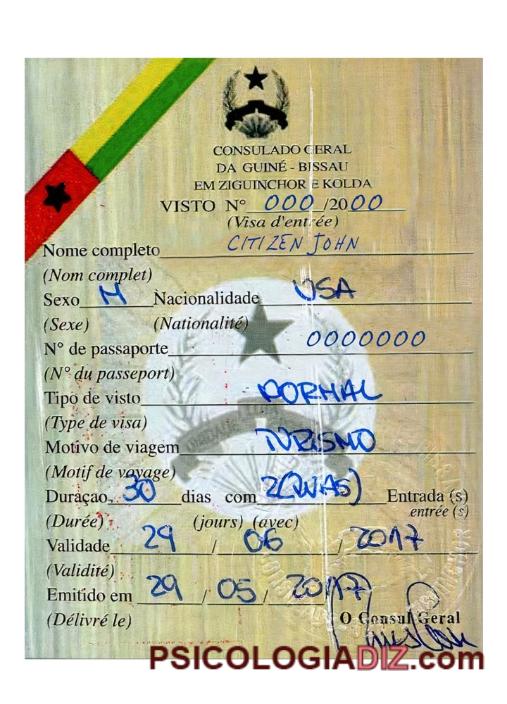 CONSULADO GERAL
DA GUINÉ - BISSAU
EM ZIGUINCHOR E KOLDA
VISTO Nº 000 /2000
(Visa d'entrée)
Nome completo CITIZEN JOHN
(Nom complet)
Sexo M Nacionalidade USA
(Sexe) (Nationalité)
Nº de passaporte 0000000
(Nº du passeport)
Tipo de visto NORMAL
(Type de visa)
Motivo de viagem TURISMO
(Motif de voyage)
Duraçao 30 dias com 2(DUAS) Entrada (s)
(Durée) (jours) (avec) entrée (s)
Validade 29 / 06 / 2017
(Validité)
Emitido em 29 / 05 / 2017
(Délivré le) O Consul Geral
PSICOLOGIADIZ.com